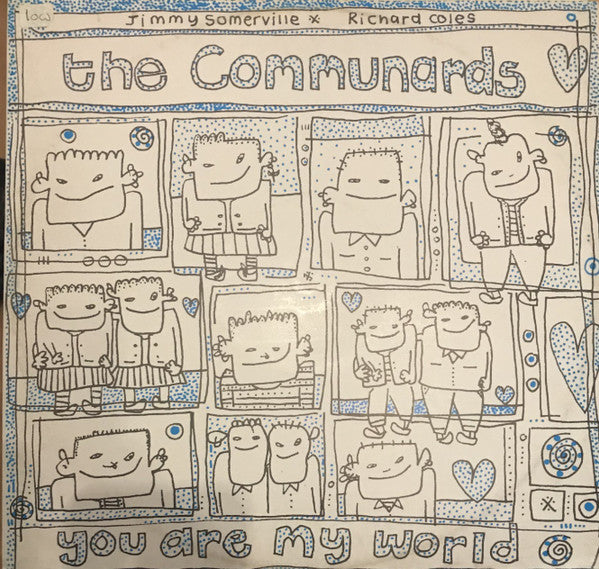 low
Jimmy Somerville x Richard Coles
the Communards
you are my world